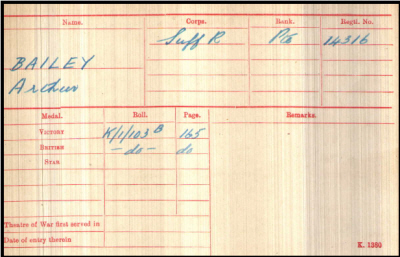 Name. Corps. Rank. Regtl. No.
Suff R Pte 14316
BAILEY
Arthur
Medal. Roll. Page. Remarks.
VICTORY K/1/103 B 165
BRITISH - do - do
STAR
Theatre of War first served in
Date of entry therein
K. 1380